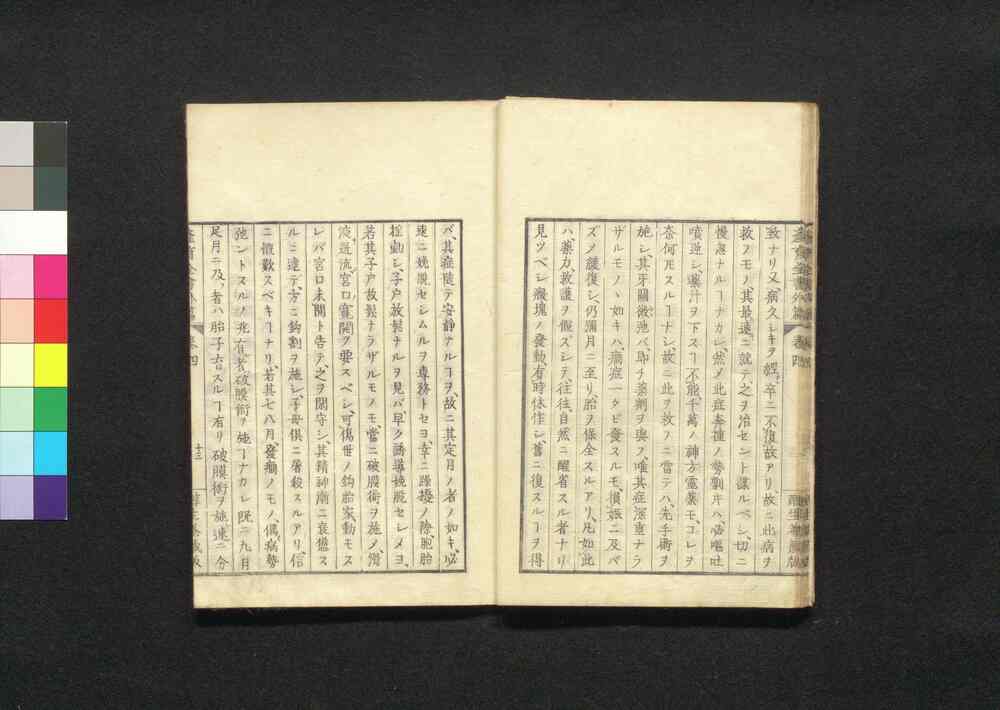 致ナリ又、病久シキヲ經、卒ニ不復故アリ故ニ此病ヲ
救フモノ、其最速ニ就テ之ヲ治セント謀ルベシ、切ニ
慢忽ナルヿナカレ、然メ此症奔撞ノ勢劇キハ必嘔吐
噴逆シ、藥汁ヲ下スヿ不能、千萬ノ神方靈藥モ、コレヲ
奈何トモスルヿナシ、故ニ此ヲ救フニ當テハ、先手術ヲ
施シ、其牙關微弛バ、即チ藥劑ヲ與フ、唯其症深重ナラ
ザルモノヽ如キハ、癇症一タビ發スルモ、損娠ニ及バ
ズメ緩復シ、仍彌月ニ至リ、胎ヲ保全スルアリ、凡如此
ハ、藥力救護ヲ假ズシテ、往往自然ニ醒省スル者ナリ
見ツベシ癥塊ノ發動、有時休作シ、舊ニ復スルヿヲ得
バ、其症隨テ安靜ナルヿヲ、故ニ其定月ノ者ノ如キ、必
速ニ娩脱セシムルヲ専務トセヨ、幸ニ躁擾ノ際、胞胎
搖動シ、子戸放鬆ナルヲ見バ、早ク誘導娩脱セシメヨ、
若其子戸放鬆ナラザルモノモ、當ニ破膜術ヲ施メ、
液逆流、宮口寛開ヲ要スベシ、可傷世ノ鈎胎家、動モス
レバ宮口未開ト告テ、之ヲ閑守シ、其精神南ニ衰憊ス
ルニ逮テ、方ニ鈎割ヲ施シ、子母倶ニ屠殺スルアリ、信
ニ慨歎スベキヿナリ、若其七八月、發癇ノモノ、偶病勢
弛ントスルノ兆有者破膜術ヲ施ヿナカレ既ニ九月
足月ニ及、者ハ胎子育スルヿ有リ破膜術ヲ施速ニ分